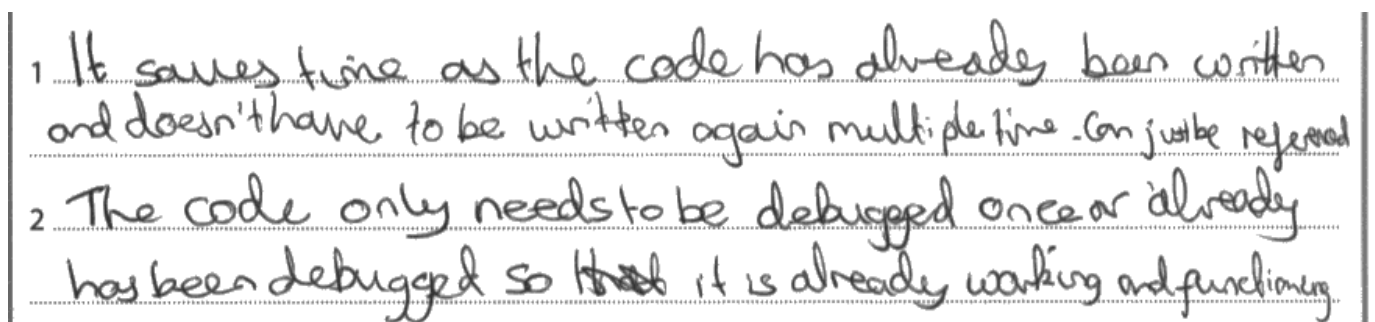 1 It saves time as the code has already been written
and doesn't have to be written again multiple time. Can just be refereed
2 The code only needs to be debugged once or already
has been debugged so it is already working and functioning